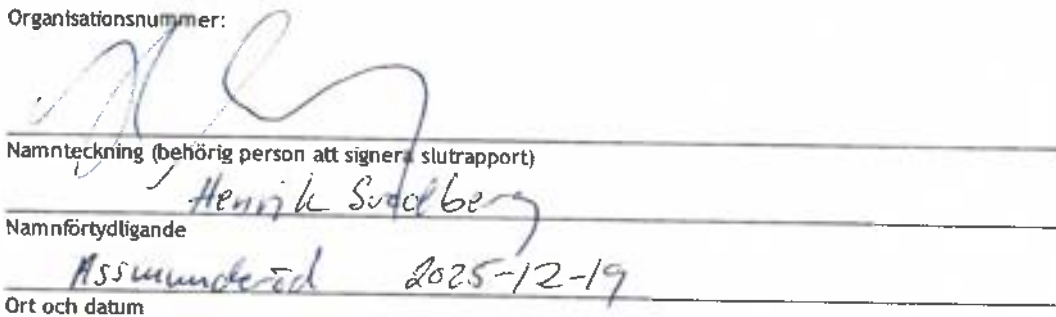 Organisationsnummer:
Namnteckning (behörig person att signera slutrapport)
Henrik
Namnförtydligande
Assmunderöd 2025-12-19
Ort och datum